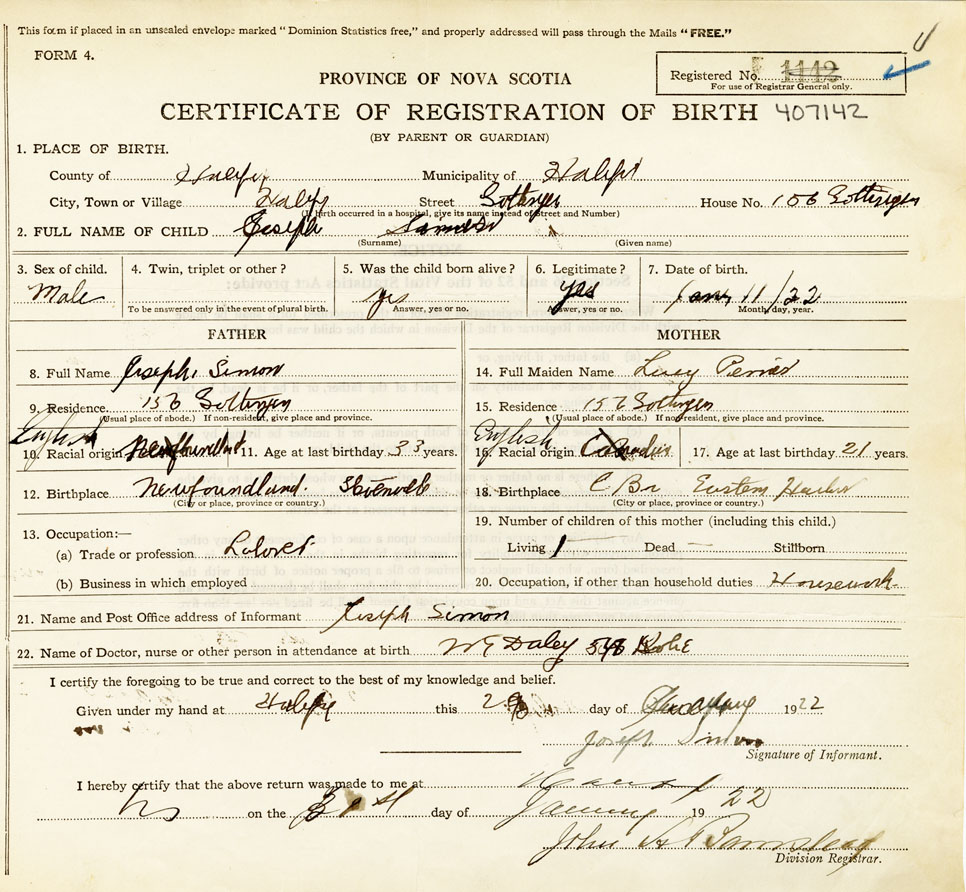 This form if placed in an unsealed envelope marked "Dominion Statistics free," and properly addressed will pass through the Mails "FREE."
FORM 4.
PROVINCE OF NOVA SCOTIA
Registered No. 1142
For use of Registrar General only.
CERTIFICATE OF REGISTRATION OF BIRTH 407142
(BY PARENT OR GUARDIAN)
1. PLACE OF BIRTH.
County of Halifax Municipality of Halifax
City, Town or Village Halifax Street Gottingen House No. 156 Gottingen
(If birth occurred in a hospital, give its name instead of Street and Number)
2. FULL NAME OF CHILD Joseph
(Surname) (Given name)
3. Sex of child. 4. Twin, triplet or other? 5. Was the child born alive? 6. Legitimate? 7. Date of birth.
Male yes yes Jany 11/22
To be answered only in the event of plural birth. Answer, yes or no. Answer, yes or no. Month, day, year.
FATHER MOTHER
8. Full Name Joseph Simon 14. Full Maiden Name Lucy
9. Residence 156 Gottingen 15. Residence 156 Gottingen
(Usual place of abode.) If non-resident, give place and province. (Usual place of abode.) If non-resident, give place and province.
English English
10. Racial origin Newfoundland 11. Age at last birthday 33 years. 16. Racial origin Canadian 17. Age at last birthday 21 years.
12. Birthplace Newfoundland 18. Birthplace C Br Eastern Harbor
(City or place, province or country.) (City or place, province or country.)
13. Occupation:— 19. Number of children of this mother (including this child.)
(a) Trade or profession Laborer Living 1 Dead — Stillborn
(b) Business in which employed 20. Occupation, if other than household duties Housework
21. Name and Post Office address of Informant Joseph Simon
22. Name of Doctor, nurse or other person in attendance at birth Daley
I certify the foregoing to be true and correct to the best of my knowledge and belief.
Given under my hand at Halifax this day of 1922
Joseph Simon
Signature of Informant.
I hereby certify that the above return was made to me at Halifax
NS on the day of January 1922
John A Barnstead
Division Registrar.